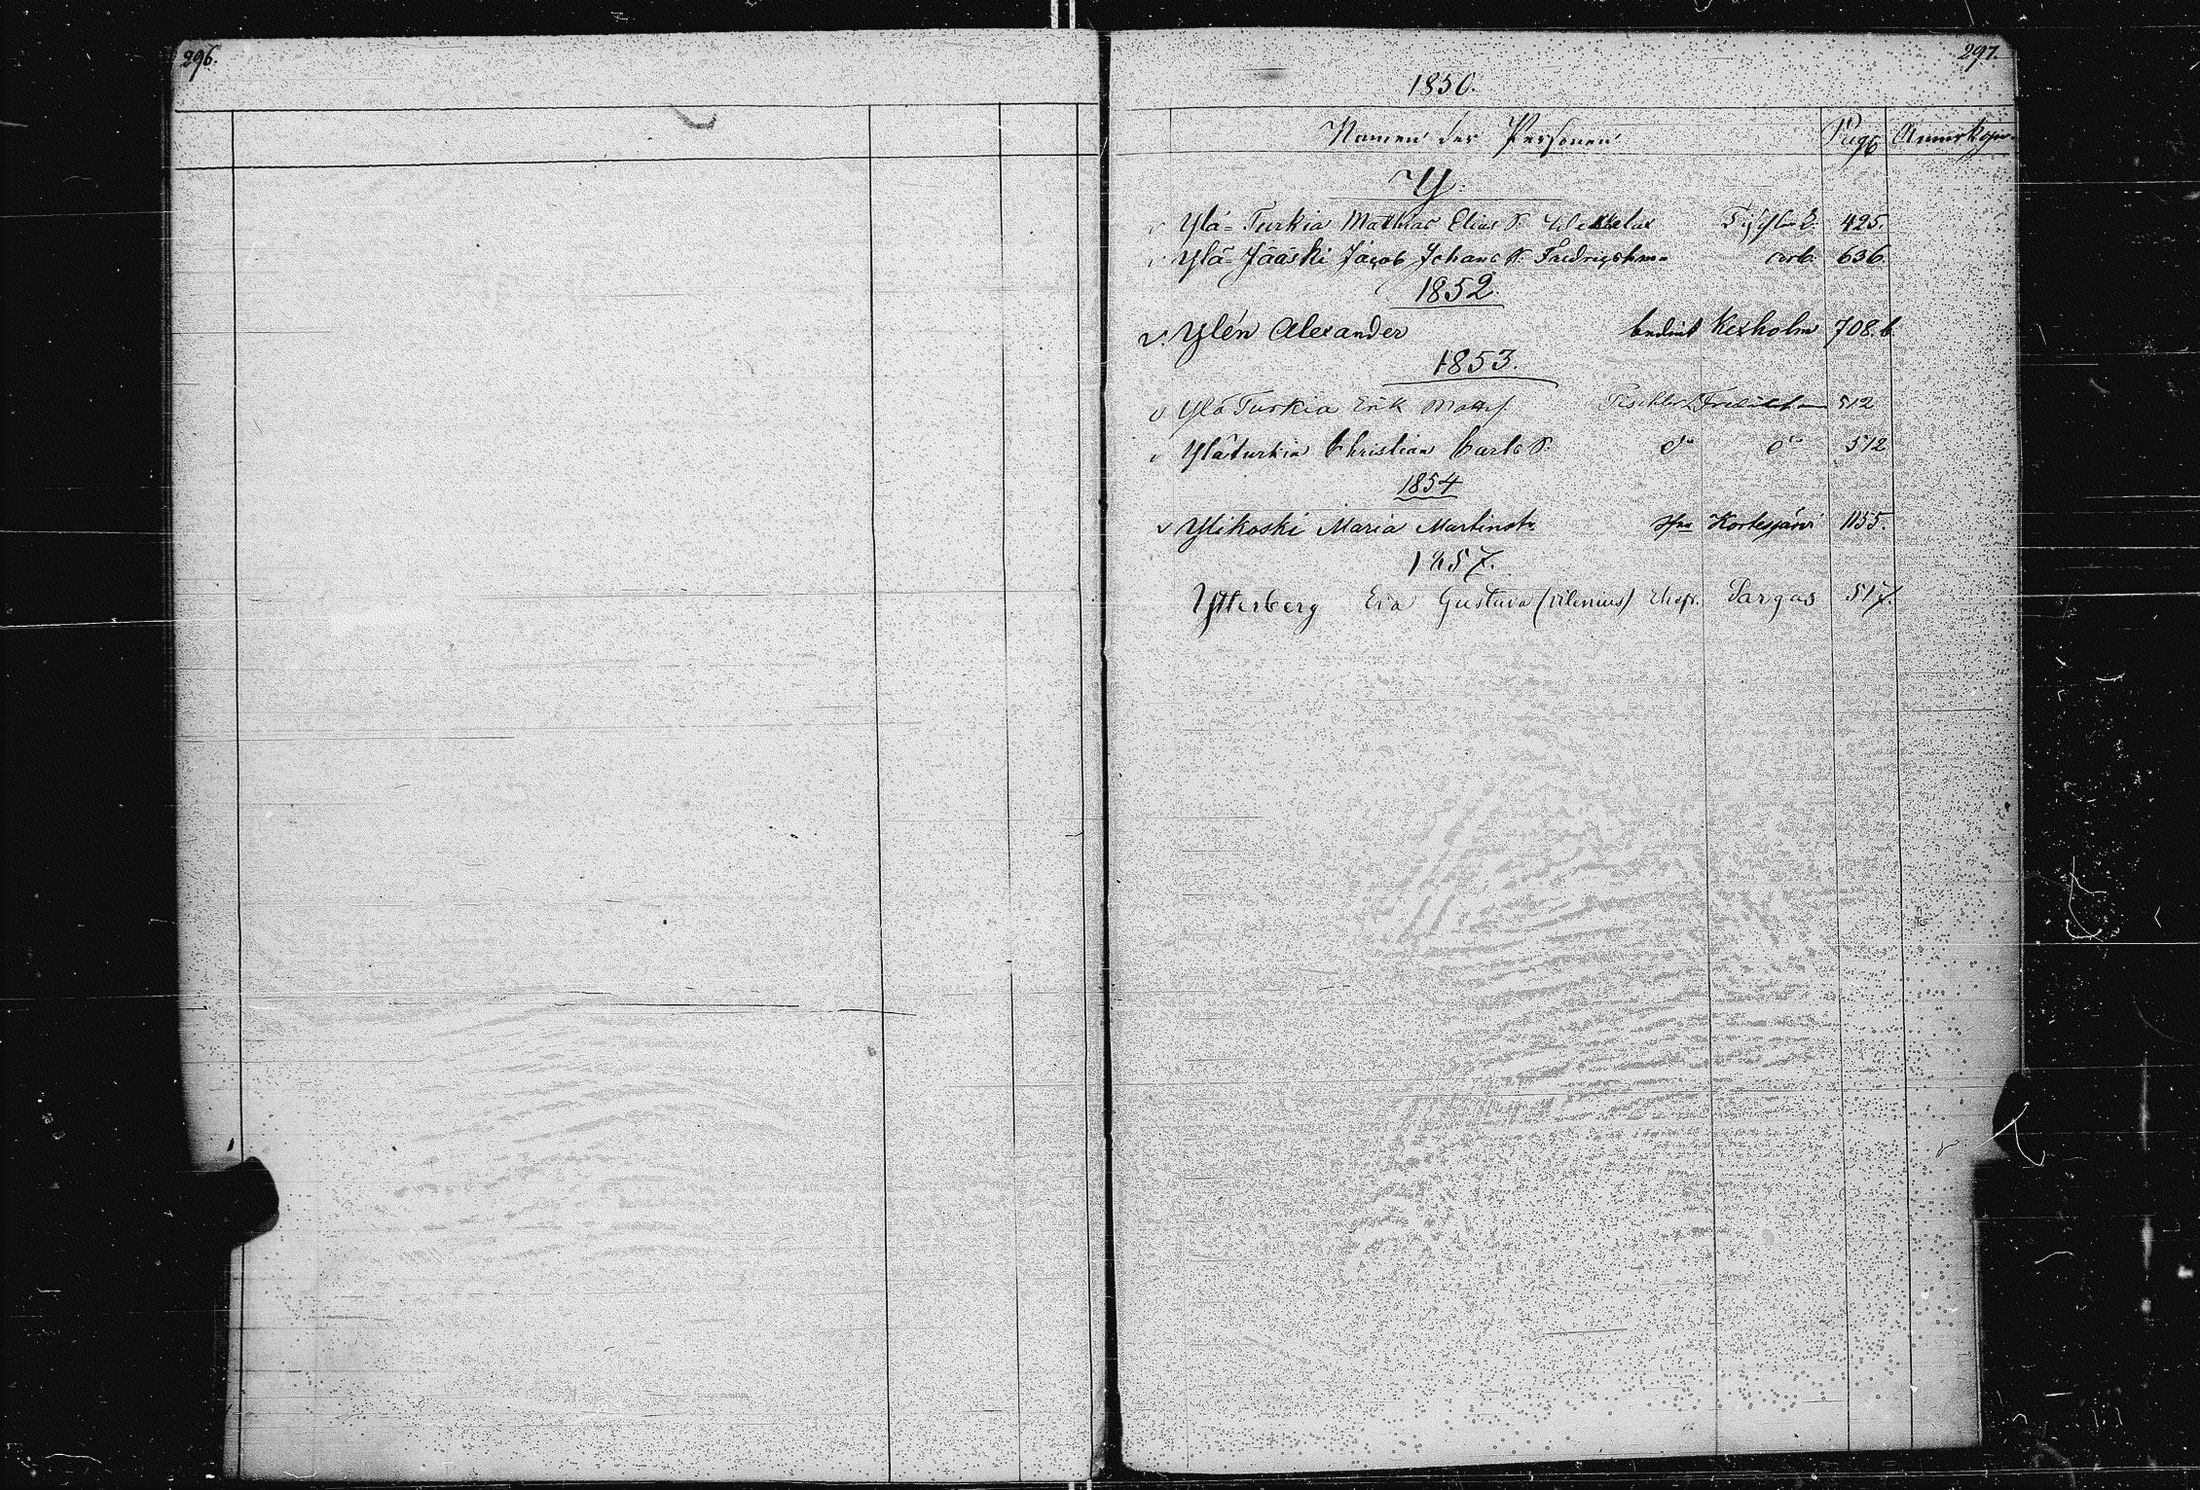 296.
297.
1850.
Namen der Personen Pag. Anmerkgen
Y.
v Ylä-Turkia Mathias Elias S. Tischler L. 425.
v Ylä-Jääski Jacob Johans S. Fredrigsham arb. 636.
1852.
v. Ylén Alexander bedient Kexholm 708.b
1853.
v Ylä Turkia Erik Matts. Tischler L. 512
v Yläturkia Christian Carls S. do do 512
1854
v Ylikoski Maria Martinstr. Kortesjärvi 1155.
1857.
Ytterberg Eva Gustava (Wilenius) Ehefr. Pargas 517.